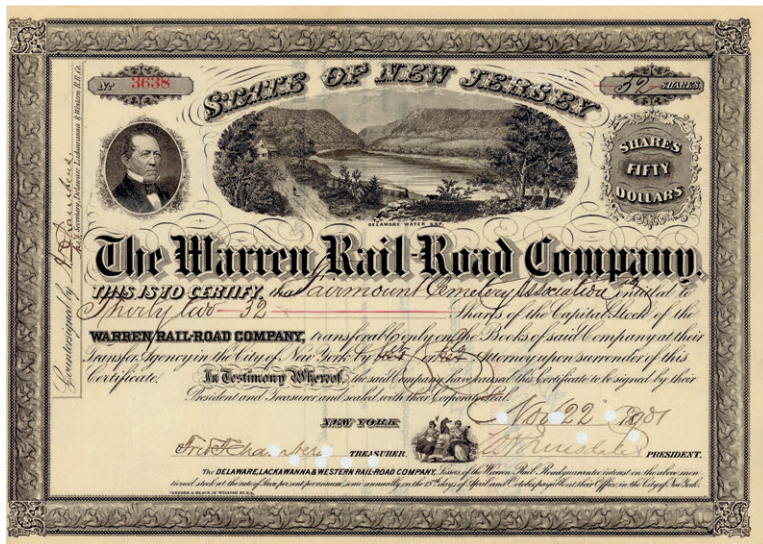 Nº 3638
STATE OF NEW JERSEY
32 SHARES
SHARES
FIFTY
DOLLARS
DELAWARE WATER GAP
The Warren Rail-Road Company.
THIS IS TO CERTIFY, that Fairmount Cemetery Association is entitled to
Thirty two — 32 — Shares of the Capital Stock of the
WARREN RAIL-ROAD COMPANY, transferable only on the Books of said Company at their
Transfer Agency in the City of New York by its or its Attorney upon surrender of this
Certificate. In Testimony Whereof, the said Company have caused this Certificate to be signed by their
President and Treasurer and sealed with their Corporate Seal.
NEW YORK Nov 22 1901
Fred F Chambers TREASURER. PRESIDENT.
The DELAWARE, LACKAWANNA & WESTERN RAIL-ROAD COMPANY, Lessees of the Warren Rail-Road guarantee interest on the above men
tioned stock at the rate of seven per cent per annum semi annually on the 15th days of April and October payable at their Office in the City of New York.
Countersigned by F Chambers
Secretary, Delaware Lackawanna & Western R.R. Co.